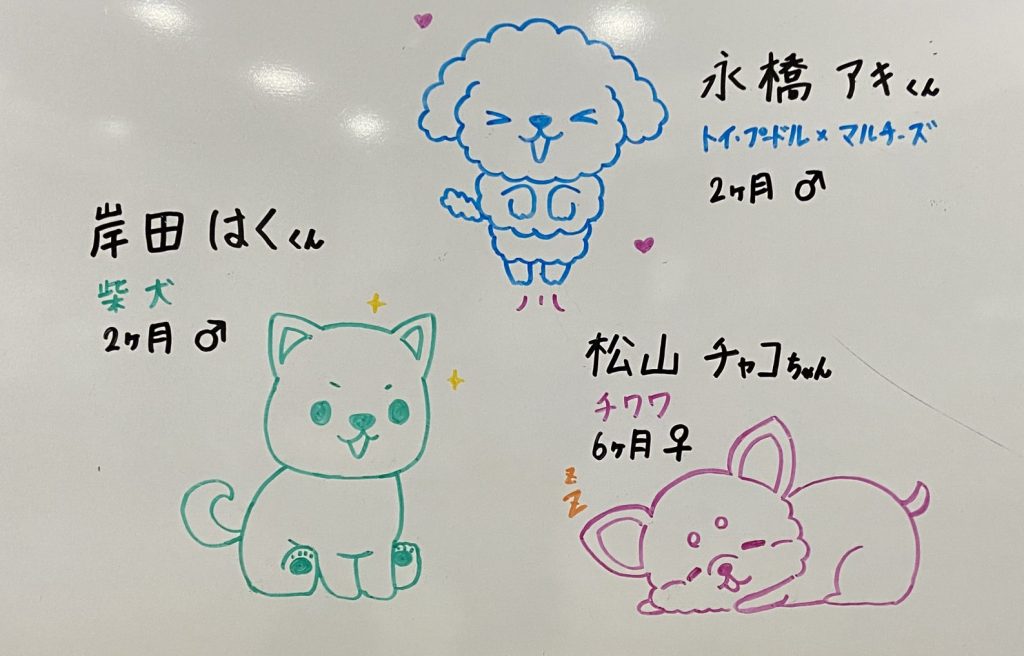 永橋 アキくん
トイ・プードル×マルチーズ
2ヶ月 ♂
岸田 はくくん
柴犬
2ヶ月 ♂
松山 チャコちゃん
チワワ
6ヶ月 ♀
z
z